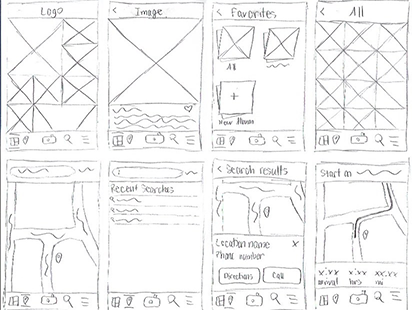 Logo
Image
Favorites
All
All
New Album
Recent Searches
Search results
Location name
Phone number
Directions
Call
Start on
x:xx
x:xx
xx.xx
arrival
hrs
mi